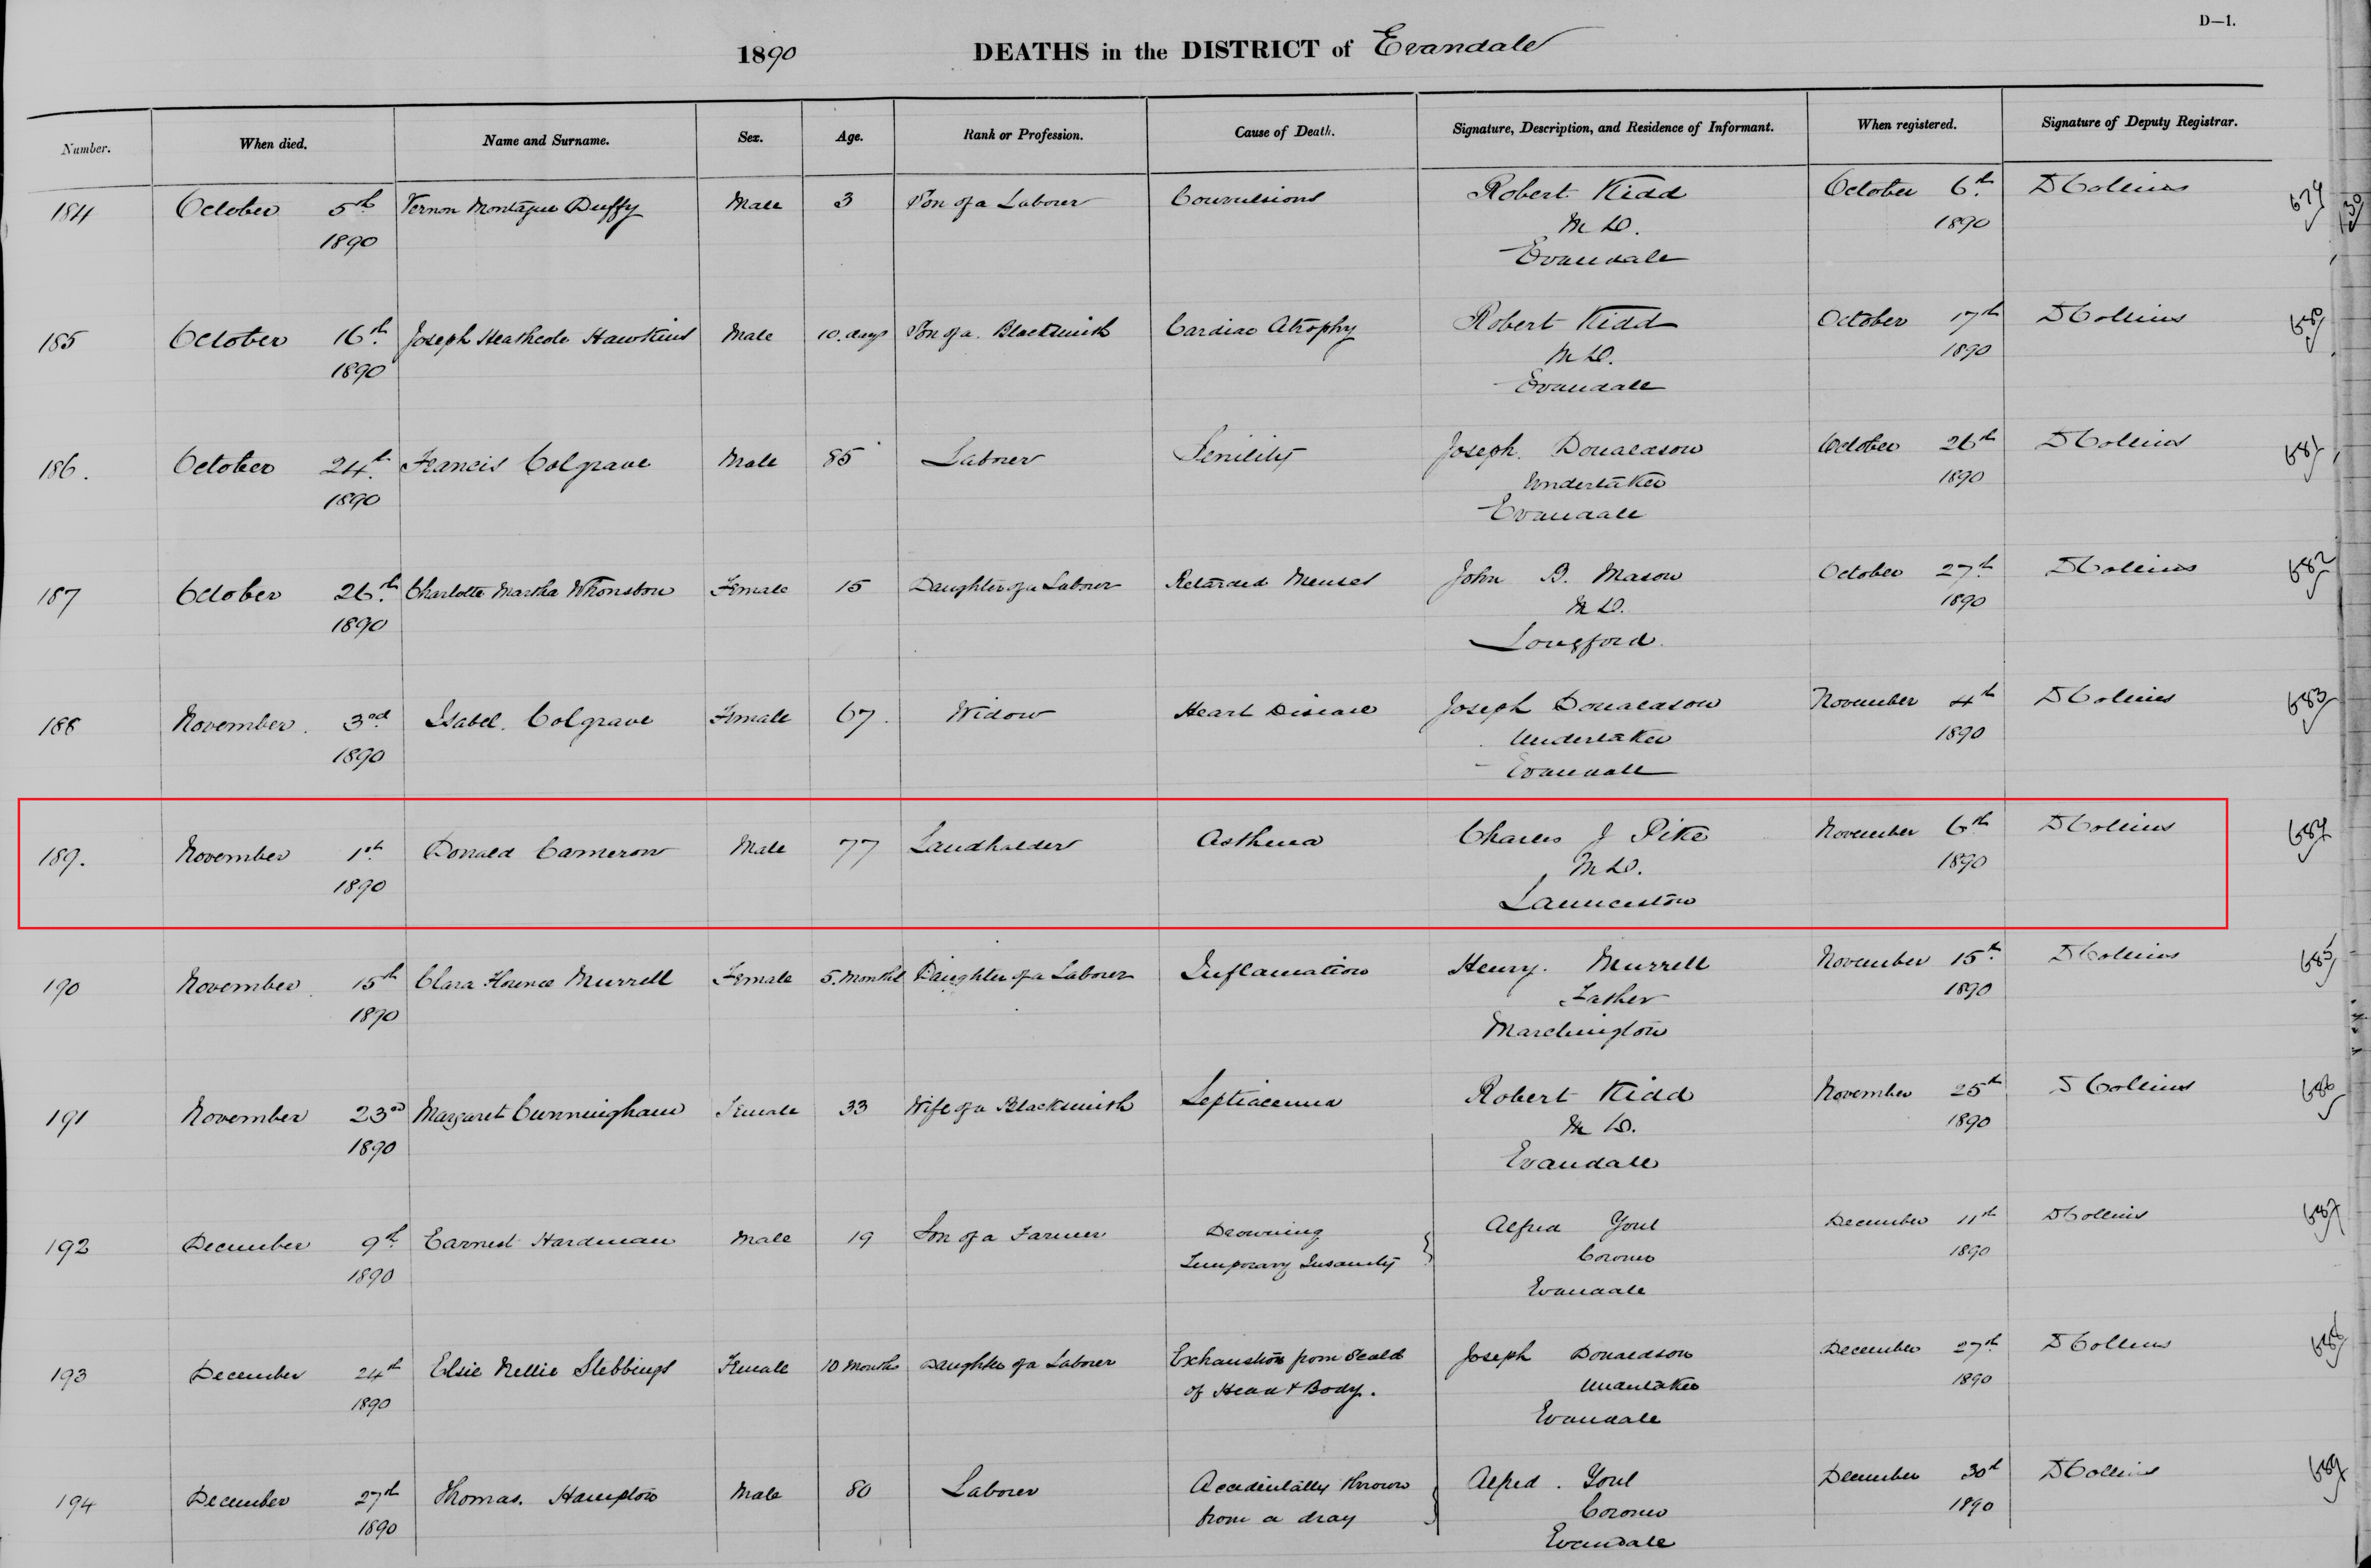 D—1.
1890 DEATHS in the DISTRICT of Evandale
Number. When died. Name and Surname. Sex. Age. Rank or Profession. Cause of Death. Signature, Description, and Residence of Informant. When registered. Signature of Deputy Registrar.
184 October 5th Vernon Montague Duffy Male 3 Son of a Laborer Convulsions Robert Kidd October 6th D Collins 579
1890 M D. 1890
Evandale
185 October 16th Joseph Heathcote Hawkins Male 10. days Son of a Blacksmith Cardiac Atrophy Robert Kidd October 17th D Collins 580
1890 M D. 1890
Evandale
186. October 24th Francis Colgrave Male 85 Laborer Senility Joseph Donaldson October 26th D Collins 581
1890 Undertaker 1890
Evandale
187 October 26th Charlotte Martha Female 15 Daughter of a Laborer Retarded Menses John B. Mason October 27th D Collins 582
1890 M D. 1890
Longford
188 November 3rd Isabel Colgrave Female 67 Widow Heart Disease Joseph Donaldson November 4th D Collins 583
1890 Undertaker 1890
Evandale
189. November 1st Donald Cameron Male 77 Landholder Asthma Charles J Pike November 6th D Collins 584
1890 M D. 1890
Launceston
190 November 15th Clara Florence Murrell Female 5 Months Daughter of a Laborer Inflamation Henry Murrell November 15th D Collins 585
1890 Father 1890
191 November 23rd Margaret Cunningham Female 33 Wife of a Blacksmith Robert Kidd November 25th D Collins 586
1890 M D. 1890
Evandale
192 December 9th Earnest Hardman Male 19 Son of a Farmer Drowning Alfred Youl December 11th D Collins 587
1890 Temporary Insanity Coroner 1890
Evandale
193 December 24th Elsie Nellie Stebbings Female 10 Months Daughter of a Laborer Exhaustion from Scald Joseph Donaldson December 27th D Collins 588
1890 of Head & Body. Undertaker 1890
Evandale
194 December 27th Thomas Hampton Male 80 Laborer Accidentally thrown Alfred Youl December 30th D Collins 589
1890 from a dray Coroner 1890
Evandale